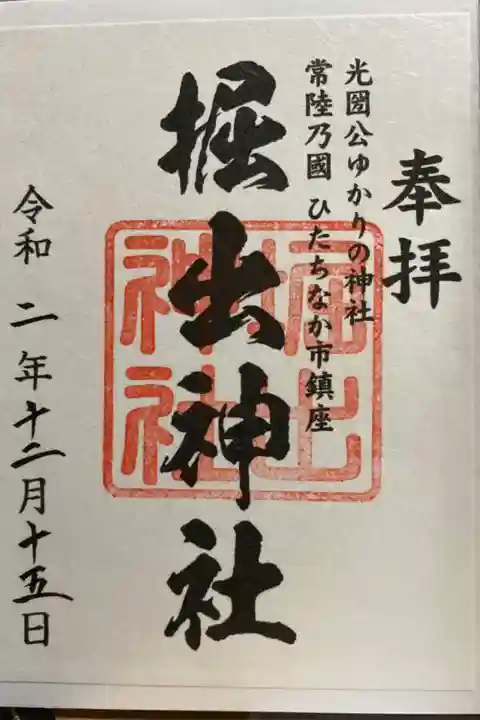 奉拝
光圀公ゆかりの神社
常陸乃國 ひたちなか市鎮座
掘出神社
掘出神社
令和 二年十二月十五日